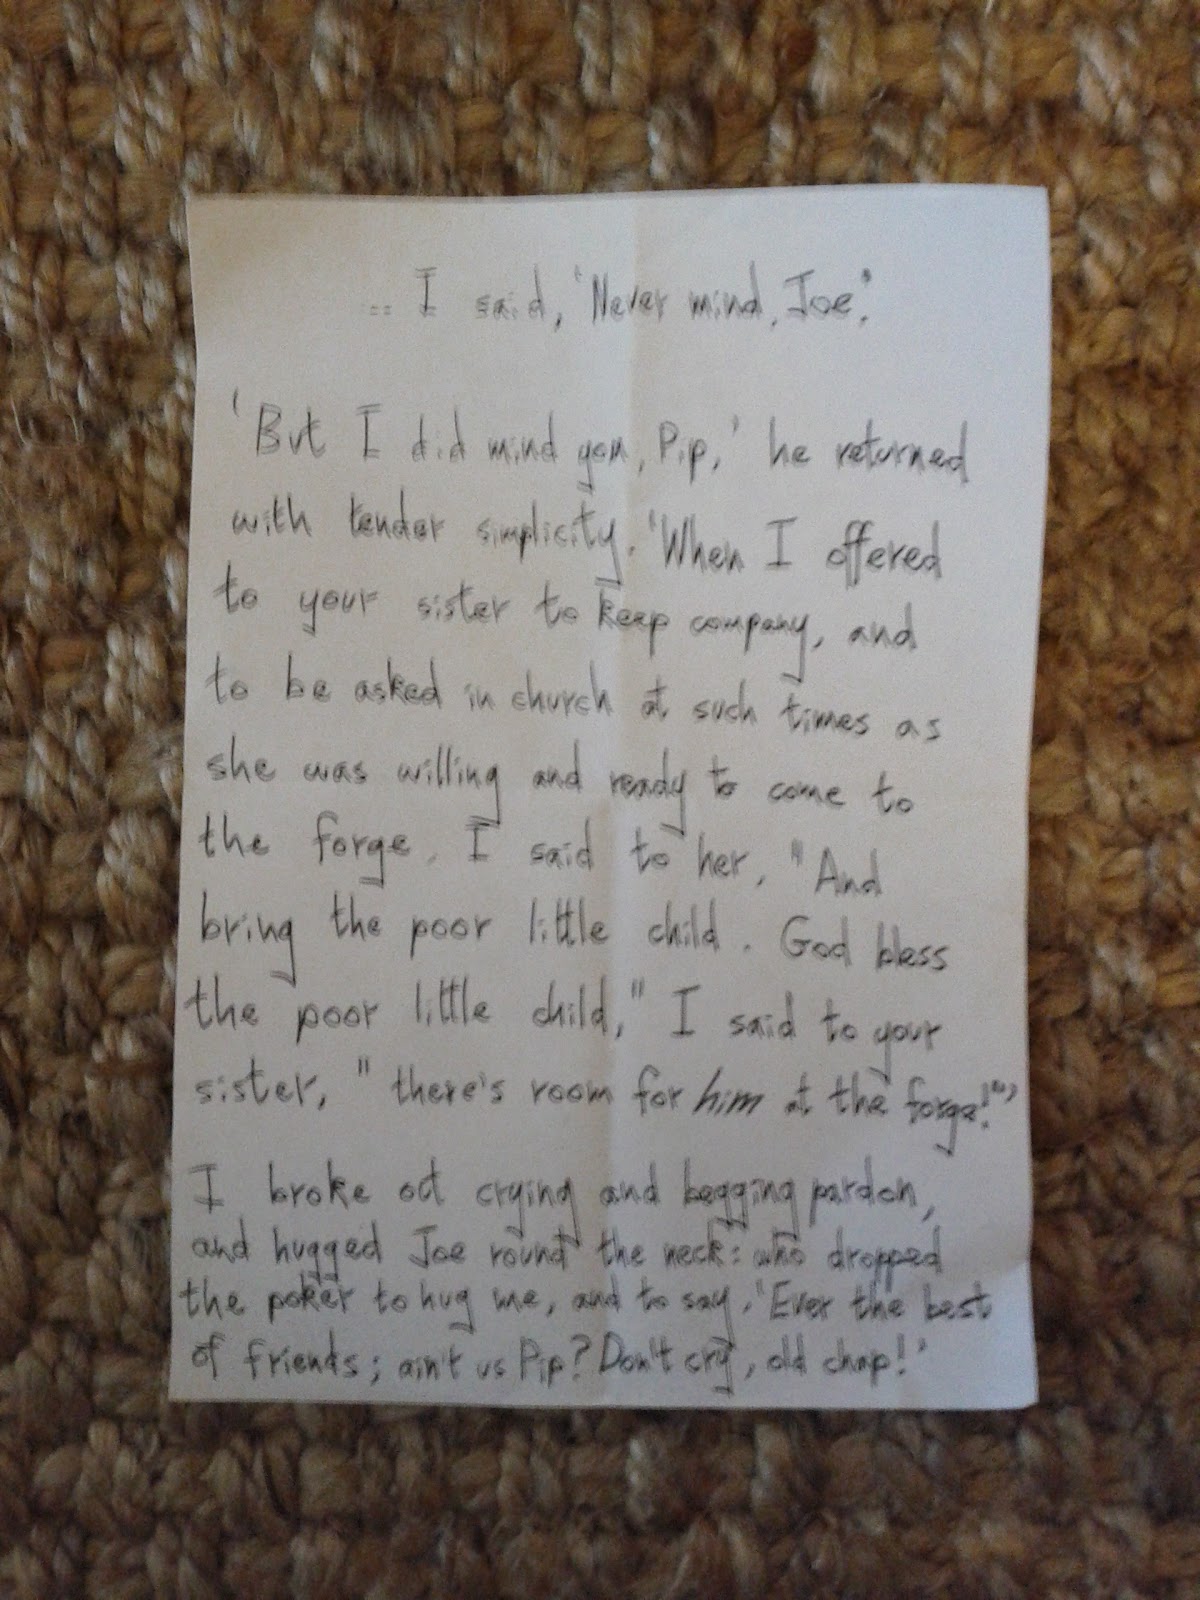 ... I said, 'Never mind, Joe.'
'But I did mind you, Pip,' he returned
with tender simplicity. 'When I offered
to your sister to keep company, and
to be asked in church at such times as
she was willing and ready to come to
the forge, I said to her, "And
bring the poor little child. God bless
the poor little child," I said to your
sister, "there's room for him at the forge!"'
I broke out crying and begging pardon,
and hugged Joe round the neck: who dropped
the poker to hug me, and to say, 'Ever the best
of friends; ain't us Pip? Don't cry, old chap!'